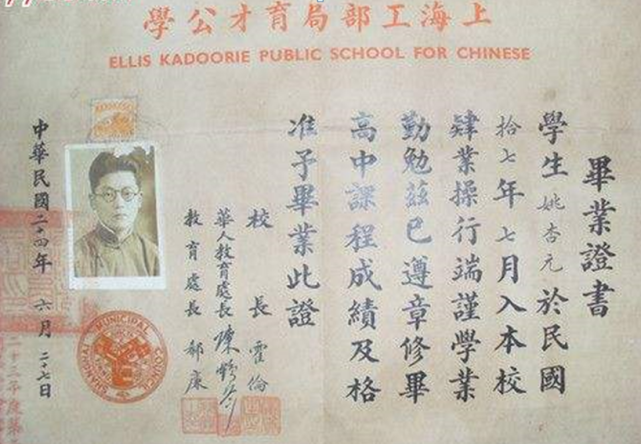 學公才育局部工海上
ELLIS KADOORIE PUBLIC SCHOOL FOR CHINESE
畢業證書
學生姚杏元於民國
拾七年七月入本校
肄業操行端謹學業
勤勉茲已遵章修畢
高中課程成績及格
准予畢業此證
校長霍倫
華人教育處長陳鶴琴
教育處長郝康
中華民國二十四年六月二十七日
MUNICIPAL COUNCIL
SHANGHAI